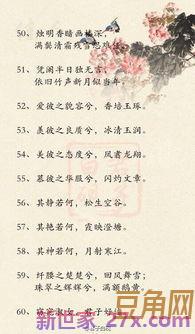 50、烛明香暗画楼深，
满鬓清霜残雪思难任。
51、凭阑半日独无言，
依旧竹声新月似当年。
52、爱彼之貌容兮，香培玉琢。
53、美彼之良质兮，冰清玉润。
54、美彼之态度兮，凤翥龙翔。
55、慕彼之华服兮，闪灼文章。
56、其静若何，松生空谷。
57、其艳若何，霞映澄塘。
58、其神若何，月射寒江。
59、纤腰之楚楚兮，回风舞雪；
珠翠之辉辉兮，满额鹅黄。
60、窈窕淑女，君子好逑。
豆角网
新世家27x.com